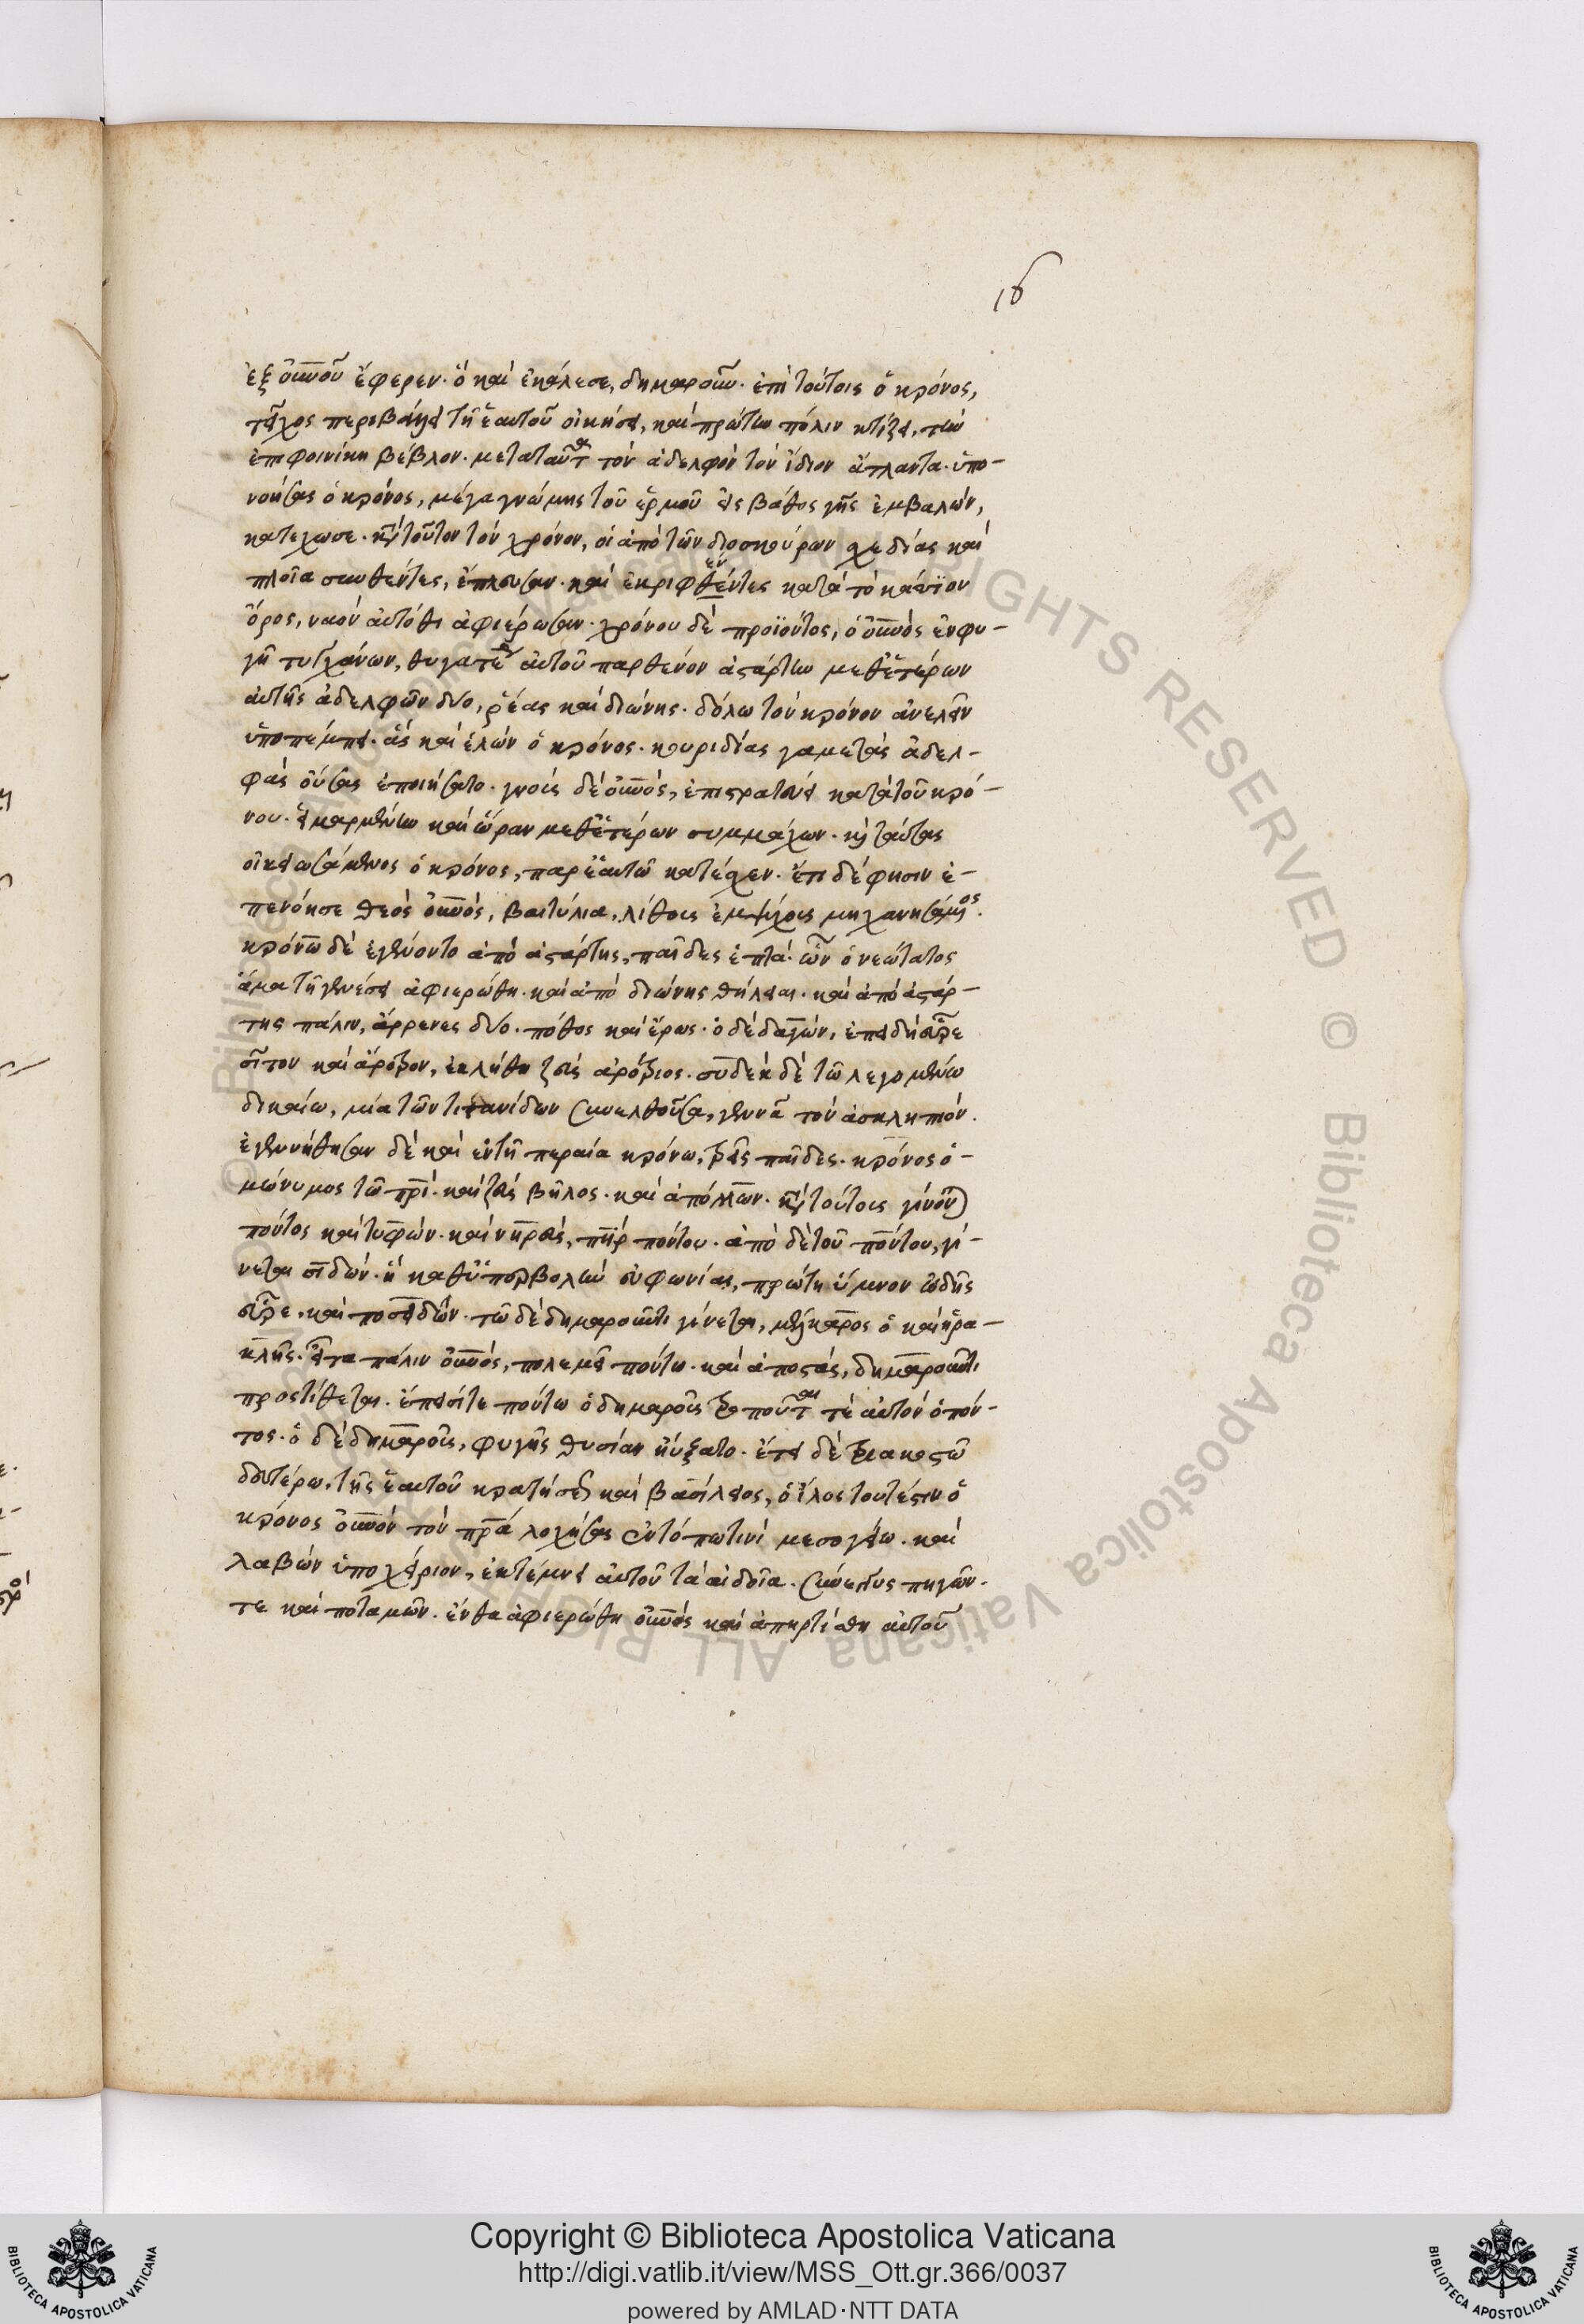 16
ἐξ οὐνοῦ ἔφερεν. ὃ καὶ ἐκάλεσε, δημαροῦν. ἐπὶ τούτοις ὁ κρόνος,
τεῖχος περιβάλλει τῇ ἑαυτοῦ οἰκήσει, καὶ πρώτην πόλιν κτίζει, τὴν
ἐπι φοινίκη βέβλον. μετα ταῦτα τὸν ἀδελφὸν τὸν ἴδιον ἄτλαντα. ὑπο-
νοήσας ὁ κρόνος, μέγα γνώμης τοῦ ἑρμοῦ εἰς βάθος γῆς ἐμβαλὼν,
κατέχωσε. κατὰ τοῦτον τὸν χρόνον, οἱ ἀπὸ τῶν διοσκούρων σχεδίας καὶ
πλοῖα συνθέντες, ἔπλευσαν. καὶ ἐκριφθέντες κατὰ τὸ κάσϊον
ὄρος, ναὸν αὐτόθι ἀφιέρωσαν. χρόνου δὲ προϊόντος, ὁ οὐνὸς ἐν φυ-
γῇ τυγχάνων, θυγατέρα αὐτοῦ παρθένον ἀστάρτην μεθ' ἑτέρων
αὐτῆς ἀδελφῶν δύο, ῥέας καὶ διώνης. δόλω τὸν κρόνον ἀνελεῖν
ὑποπέμπει. ἃς καὶ ἑλὼν ὁ κρόνος. κουριδίας γαμετὰς ἀδελ-
φὰς οὔσας ἐποιήσατο. γνοὺς δὲ οὐνὸς, ἐπιστρατεύει κατὰ τοῦ κρό-
νου. εἱμαρμένην καὶ ὥραν μεθ' ἑτέρων συμμάχων. καὶ ταύτας
οἰκειωσάμενος ὁ κρόνος, παρ' ἑαυτῶ κατέσχεν. ἔτι δέ φησιν ἐ-
πενόησε θεὸς οὐνὸς, βαιτύλια, λίθους ἐμψύχους μηχανησάμενος.
κρόνω δὲ ἐγένοντο ἀπὸ ἀστάρτης, παῖδες ἑπτά. ὧν ὁ νεώτατος
ἅμα τῇ γενέσει ἀφιερώθη. καὶ ἀπὸ διώνης θήλειαι. καὶ ἀπὸ ἀστάρ-
της πάλιν, ἄρρενες δύο. πόθος καὶ ἔρως. ὁ δὲ δαγὼν, ἐπειδὴ εὗρε
σῖτον καὶ ἄροτρον, ἐκλήθη ζεὺς ἀρότριος. συδὲκ δὲ τῶ λεγομένω
δικαίω, μία τῶν τιτανίδων συνελθοῦσα, γεννᾶ τὸν ἀσκληπιόν.
ἐγεννήθησαν δὲ καὶ ἐν τῇ περαία κρόνω, τρεῖς παῖδες. κρόνος ὁ-
μώνυμος τῶ πρὶ. καὶ ζεὺς βῆλος. καὶ ἀπόλλων. κατὰ τούτους γίνονται
πόντος καὶ τυφὼν. καὶ νηρεὺς, πὴρ πόντου. ἀπὸ δὲ τοῦ πόντου, γί-
νεται σιδὼν. ἡ καθ' ὑπερβολὴν εὐφωνίας, πρώτη ὕμνον ὠδῆς
εὗρε. καὶ ποσειδῶν. τῶ δὲ δημαροῦντι γίνεται, μελίκαρος ὁ καὶ ἡρα-
κλῆς. εἶτα πάλιν οὐνὸς, πολεμεῖ πόντω. καὶ ἀποστὰς, δημαροῦντι
προστίθεται. ἔπεισί τε πόντω ὁ δημαροῦς τροποῦται τε αὐτὸν ὁ πόν-
τος. ὁ δὲ δημαροῦς, φυγῆς θυσίαν ηὔξατο. ἔτει δὲ τριακοστῶ
δευτέρω, τῆς ἑαυτοῦ κρατήσεως καὶ βασίλειος, ὁ ἶλος τουτέστιν ὁ
κρόνος οὐνὸν τὸν πρᾶ λοχήσας ἐν τόπω τινὶ μεσογείω. καὶ
λαβὼν ὑποχείριον, ἐκτέμνει αὐτοῦ τὰ αἰδοῖα. σύνεγγυς πηγῶν.
τε καὶ ποταμῶν. ἔνθα ἀφιερώθη οὐνὸς καὶ ἀπηρτίσθη αὐτοῦ
Copyright © Biblioteca Apostolica Vaticana
http://digi.vatlib.it/view/MSS_Ott.gr.366/0037
powered by AMLAD·NTT DATA